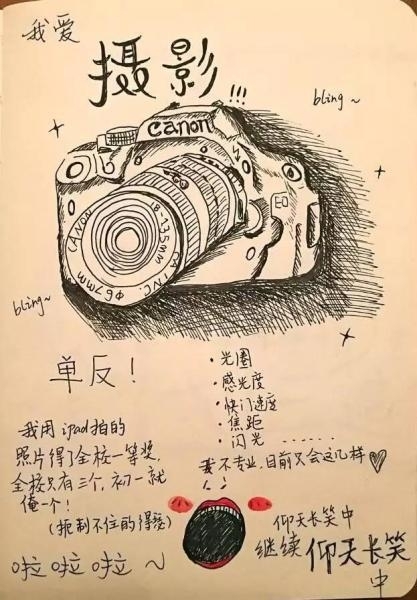 我爱
摄影!!!
bling~
Canon
EO
CANON
18-135mm
CO.INC.
Φ67mm
bling~
单反!
·光圈
·感光度
·快门速度
·焦距
·闪光 ......
我不专业,目前只会这几样♡
我用ipad拍的
照片得了全校一等奖,
全校只有三个,初一就
俺一个!
(抑制不住的得瑟)
仰天长笑中
继续仰天长笑
中
啦啦啦~